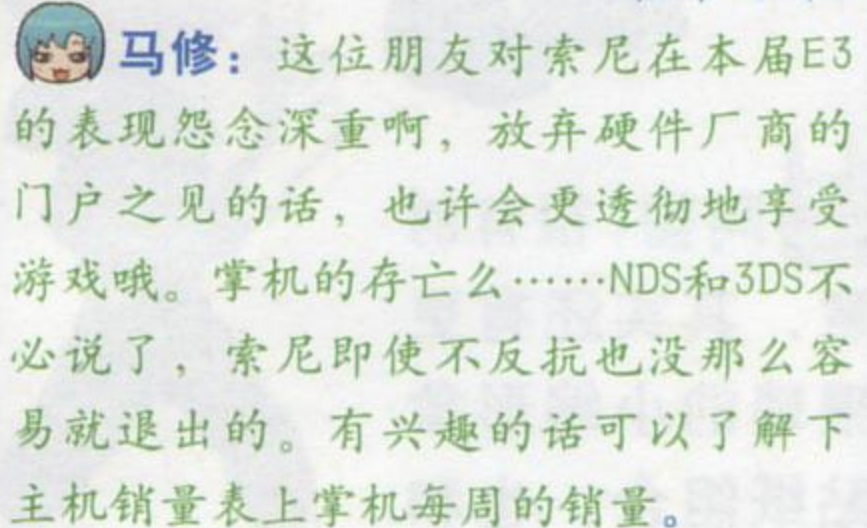 马修：这位朋友对索尼在本届E3
的表现怨念深重啊，放弃硬件厂商的
门户之见的话，也许会更透彻地享受
游戏哦。掌机的存亡么……NDS和3DS不
必说了，索尼即使不反抗也没那么容
易就退出的。有兴趣的话可以了解下
主机销量表上掌机每周的销量。